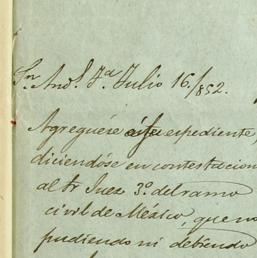 Sn. And.s Fd. Julio 16./852.
Agreguese á su espediente,
diciendóse en contestacion
al Sr Juez 3º. del ramo
civil de México, que no
pudiendo ni debiendo